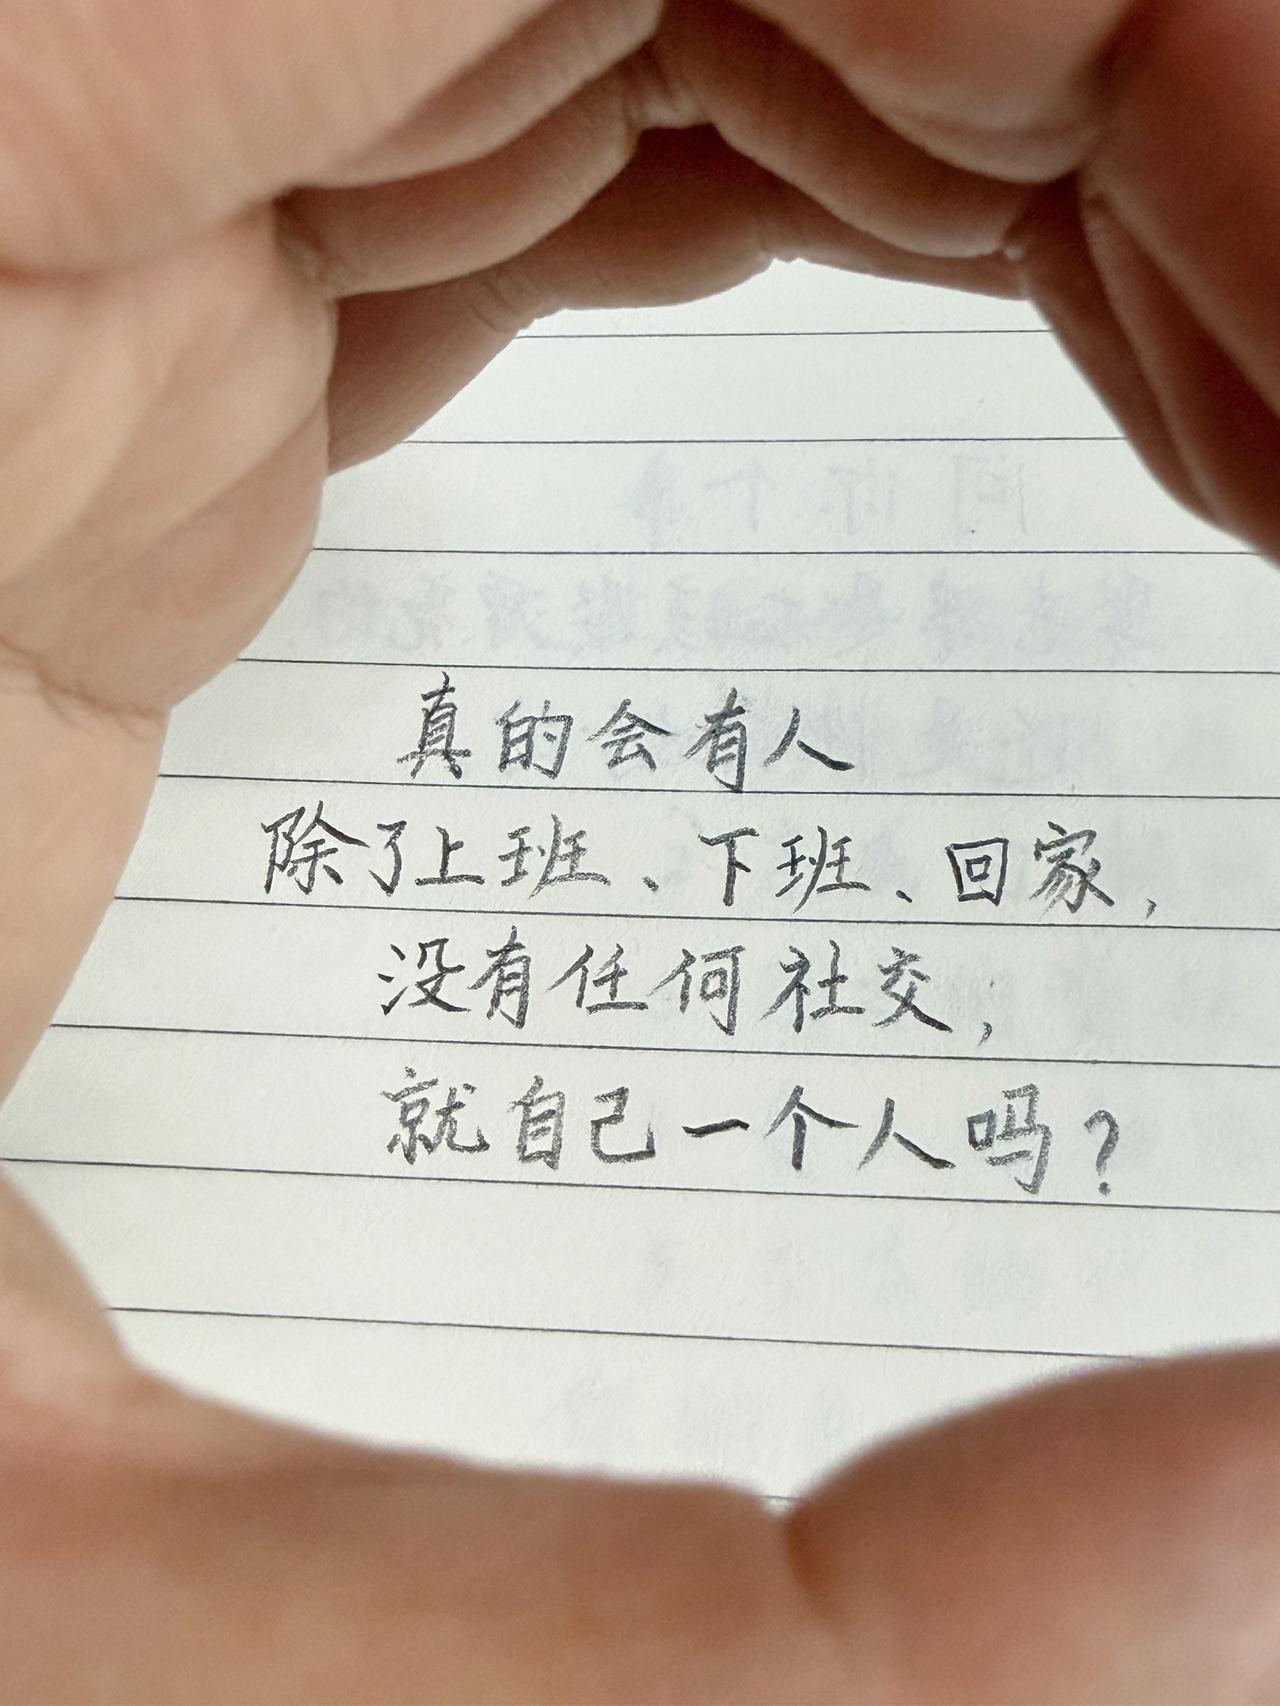 真的会有人
除了上班、下班、回家，
没有任何社交，
就自己一个人吗？